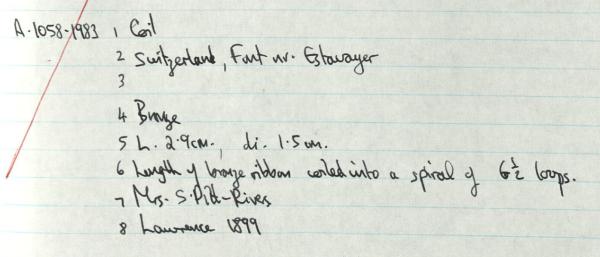 A.1058-1983 1 Coil
2 Switzerland, Font nr. Estavayer
3
4 Bronze
5 L. 2.9cm., di. 1.5cm.
6 Length of bronze ribbon coiled into a spiral of 6½ loops.
7 Mrs. S. Pitt-Rivers
8 Lawrence 1899